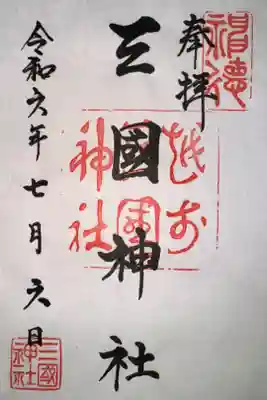 奉拝
三國神社
令和六年七月六日
越前
神社
三國神社